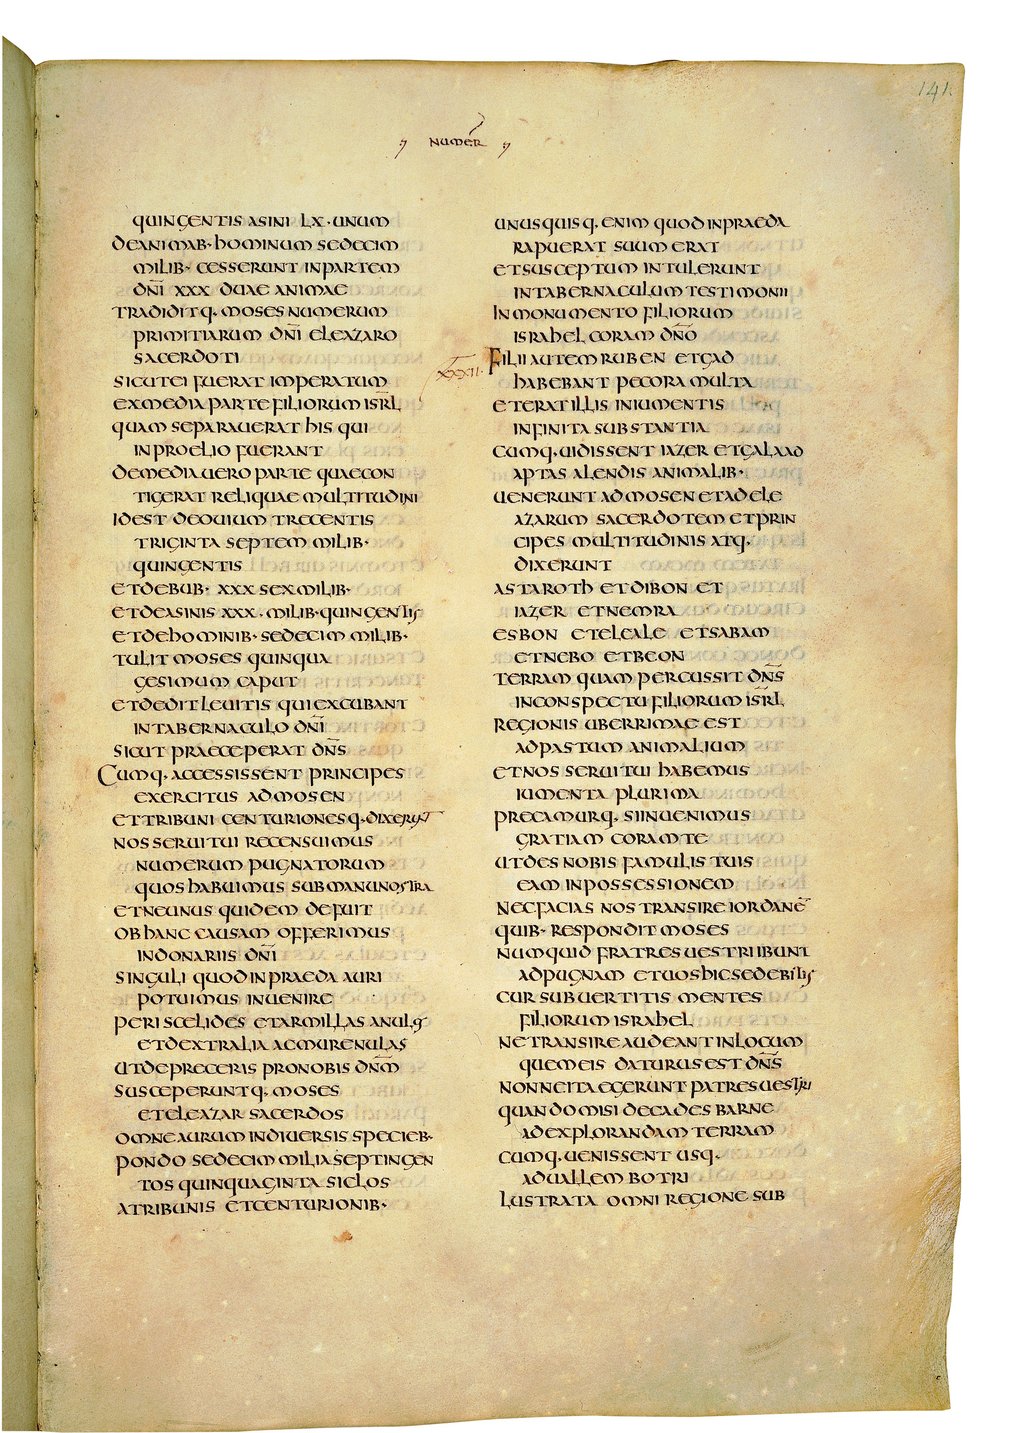 141.
NUMER
QUINGENTIS ASINI LX · UNUM
DEANIMAB· HOMINUM SEDECIM
MILIB· CESSERUNT INPARTEM
DNI XXX DUAE ANIMAE
TRADIDITQ· MOSES NUMERUM
PRIMITIARUM DNI ELEAZARO
SACERDOTI
SICUTEI FUERAT IMPERATUM
EXMEDIA PARTE FILIORUM ISRL
QUAM SEPARAUERAT HIS QUI
INPROELIO FUERANT
DEMEDIAUERO PARTE QUAECON
TIGERAT RELIQUAE MULTITUDINI
IDEST DEOUIUM TRECENTIS
TRIGINTA SEPTEM MILIB·
QUINGENTIS
ETDEBUB· XXX SEX MILIB·
ETDEASINIS XXX · MILIB· QUINGENTIS
ETDEHOMINIB· SEDECIM MILIB·
TULIT MOSES QUINQUA
GESIMUM CAPUT
ETDEDIT LEUITIS QUI EXCUBANT
INTABERNACULO DNI
SICUT PRAECEPERAT DNS
CUMQ· ACCESSISSENT PRINCIPES
EXERCITUS ADMOSEN
ETTRIBUNI CENTURIONESQ· DIXERUNT
NOS SERUI TUI RECENSUIMUS
NUMERUM PUGNATORUM
QUOS HABUIMUS SUBMANU NOSTRA
ETNEUNUS QUIDEM DEFUIT
OB HANC CAUSAM OFFERIMUS
INDONARIIS DNI
SINGULI QUOD INPRAEDA AURI
POTUIMUS INUENIRE
PERISCELIDES ETARMILLAS ANULOS
ETDEXTRALIA ACMURENULAS
UTDEPRECERIS PRONOBIS DNM
SUSCEPERUNTQ· MOSES
ETELEAZAR SACERDOS
OMNE AURUM INDIUERSIS SPECIEB·
PONDO SEDECIM MILIA SEPTINGEN
TOS QUINQUAGINTA SICLOS
ATRIBUNIS ETCENTURIONIB·
UNUSQUISQ· ENIM QUOD INPRAEDA
RAPUERAT SUUM ERAT
ETSUSCEPTUM INTULERUNT
INTABERNACULUM TESTIMONII
INMONUMENTO FILIORUM
ISRAHEL CORAM DNO
XXXII·
FILII AUTEM RUBEN ETGAD
HABEBANT PECORA MULTA
ETERAT ILLIS INIUMENTIS
INFINITA SUBSTANTIA
CUMQ· UIDISSENT IAZER ETGALAAD
APTAS ALENDIS ANIMALIB·
UENERUNT ADMOSEN ETADELE
AZARUM SACERDOTEM ETPRIN
CIPES MULTITUDINIS ATQ·
DIXERUNT
ASTAROTH ETDIBON ET
IAZER ETNEMRA
ESBON ETELEALE ETSABAM
ETNEBO ETBEON
TERRAM QUAM PERCUSSIT DNS
INCONSPECTU FILIORUM ISRL
REGIONIS UBERRIMAE EST
ADPASTUM ANIMALIUM
ETNOS SERUI TUI HABEMUS
IUMENTA PLURIMA
PRECAMURQ· SI INUENIMUS
GRATIAM CORAM TE
UTDES NOBIS FAMULIS TUIS
EAM INPOSSESSIONEM
NECFACIAS NOS TRANSIRE IORDANĒ
QUIB· RESPONDIT MOSES
NUMQUID FRATRES UESTRI IBUNT
ADPUGNAM ETUOS HIC SEDEBITIS
CUR SUBUERTITIS MENTES
FILIORUM ISRAHEL
NETRANSIRE AUDEANT INLOCUM
QUEM EIS DATURUS EST DNS
NONNE ITA EGERUNT PATRES UESTRI
QUANDO MISI DECADES BARNE
ADEXPLORANDAM TERRAM
CUMQ· UENISSENT USQ·
ADUALLEM BOTRI
LUSTRATA OMNI REGIONE SUB